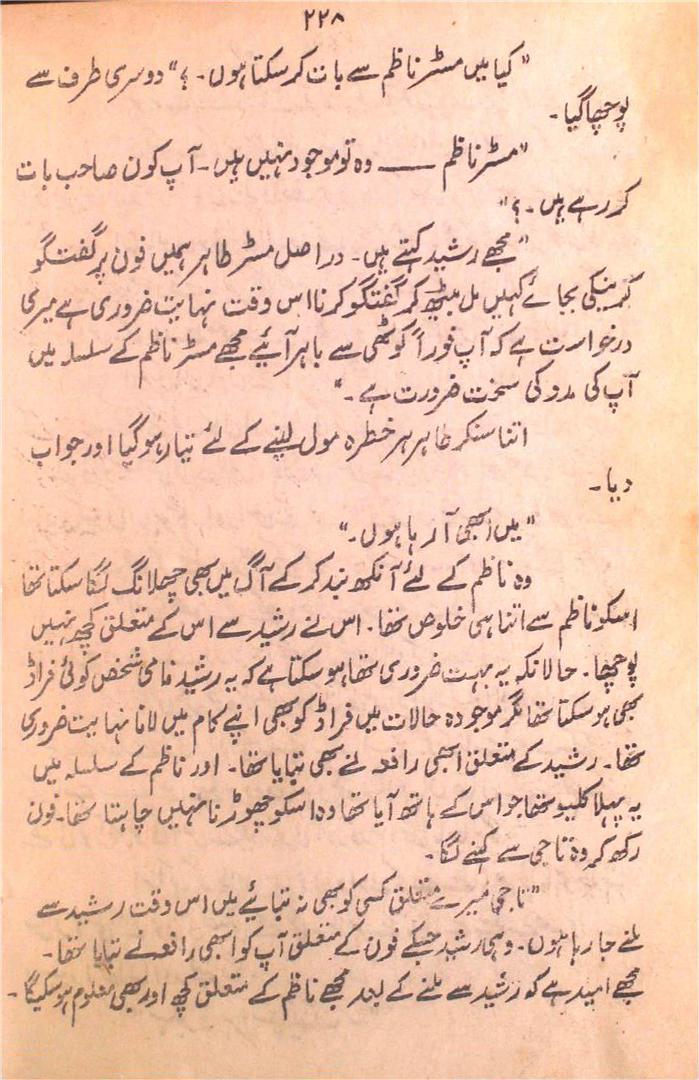 ۲۲۸
"کیا میں مسٹر ناظم سے بات کر سکتا ہوں۔ ؟" دوسری طرف سے
پوچھا گیا۔
"مسٹر ناظم ــــــ وہ تو موجود نہیں ہیں۔ آپ کون صاحب بات
کر رہے ہیں۔ ؟"
"مجھے رشید کہتے ہیں۔ دراصل مسٹر طاہر ہمیں فون پر گفتگو
کرنیکی بجائے کہیں مل بیٹھ کر گفتگو کرنا اس وقت نہایت ضروری ہے میری
درخواست ہے کہ آپ فوراً کوٹھی سے باہر آئیے مجھے مسٹر ناظم کے سلسلہ میں
آپ کی مدد کی سخت ضرورت ہے۔"
اتنا سنکر طاہر ہر خطرہ مول لینے کے لئے تیار ہو گیا اور جواب
دیا۔
"میں ابھی آ رہا ہوں۔"
وہ ناظم کے لئے آنکھ بند کر کے آگ میں بھی چھلانگ لگا سکتا تھا
اسکو ناظم سے اتنا ہی خلوص تھا۔ اس نے رشید سے اس کے متعلق کچھ نہیں
پوچھا۔ حالانکہ یہ بہت ضروری تھا ہو سکتا ہے کہ یہ رشید نامی شخص کوئی فراڈ
بھی ہو سکتا تھا مگر موجودہ حالات میں فراڈ کو بھی اپنے کام میں لانا نہایت ضروری
تھا۔ رشید کے متعلق ابھی رافعہ نے بھی بتایا تھا۔ اور ناظم کے سلسلہ میں
یہ پہلا کلیو تھا جو اس کے ہاتھ آیا تھا وہ اسکو چھوڑنا نہیں چاہتا تھا۔ فون
رکھ کر وہ تاجی سے کہنے لگا۔
"تاجی میرے متعلق کسی کو بھی نہ بتائیے میں اس وقت رشید سے
ملنے جا رہا ہوں۔ وہی رشید جسکے فون کے متعلق آپ کو ابھی رافعہ نے بتایا تھا۔
مجھے امید ہے کہ رشید سے ملنے کے بعد مجھے ناظم کے متعلق کچھ اور بھی معلوم ہو سکیگا۔